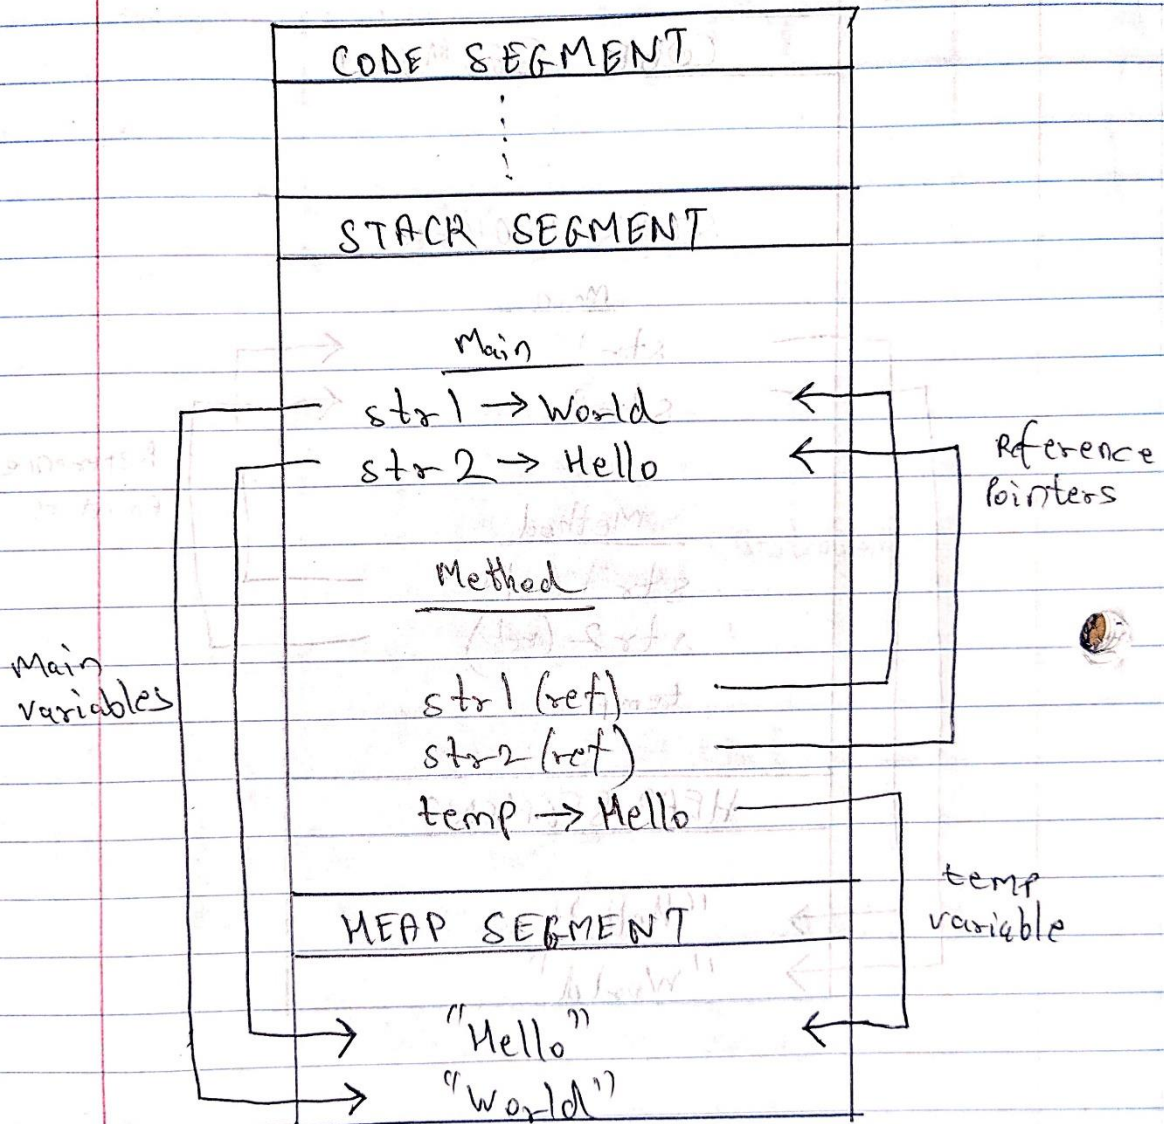 CODE SEGMENT
STACK SEGMENT
Main
str1 → World
str2 → Hello
Reference
Pointers
Method
Main
variables
str1 (ref)
str2 (ref)
temp → Hello
temp
variable
HEAP SEGMENT
"Hello"
"World"